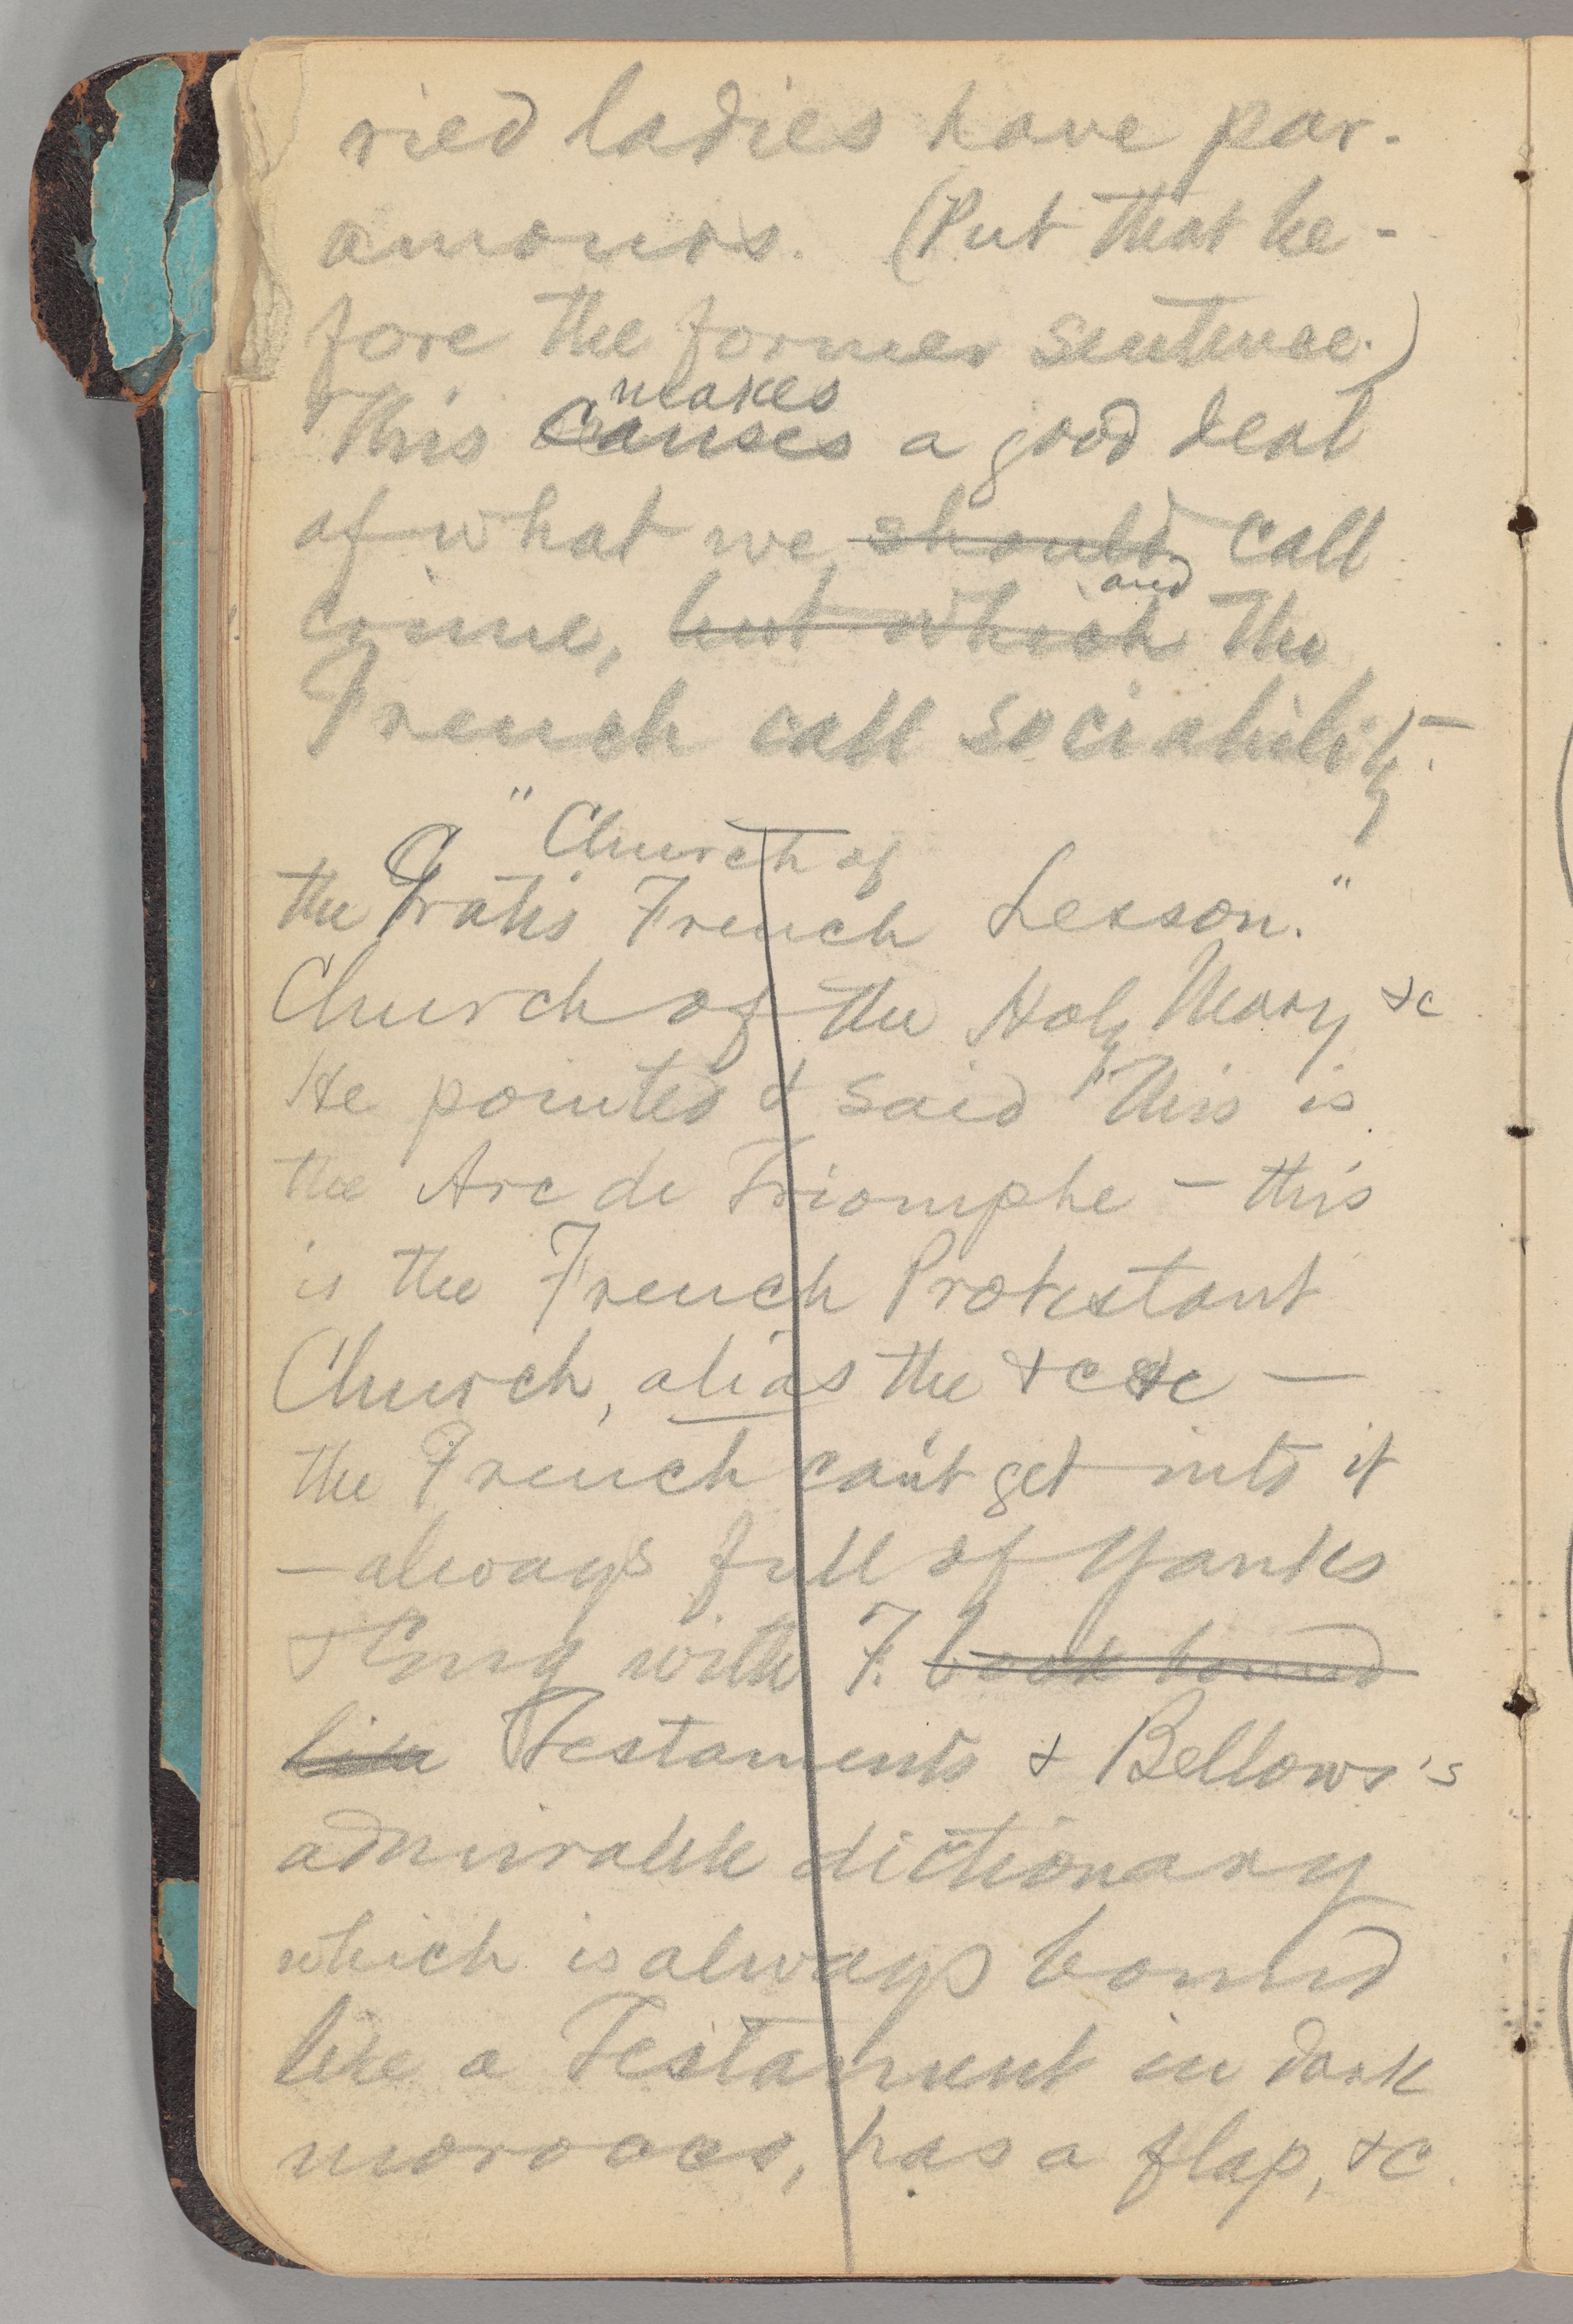 ried ladies have par-
amours. (Put that be-
fore the former sentence.)
makes
This causes a good deal
of what we should call
and
crime, but which the
French call sociability.
"Church of
the Gratis French Lesson."
Church of the Holy Mary &c
He pointed & said "This is
the Arc de Triomphe — this
is the French Protestant
Church, alias the &c &c —
the French can't get into it
— always full of Yanks
& Eng with F. book bound
like Testaments & Bellows's
admirable dictionary
which is always bound
like a Testament in dark
morocco, has a flap, &c.